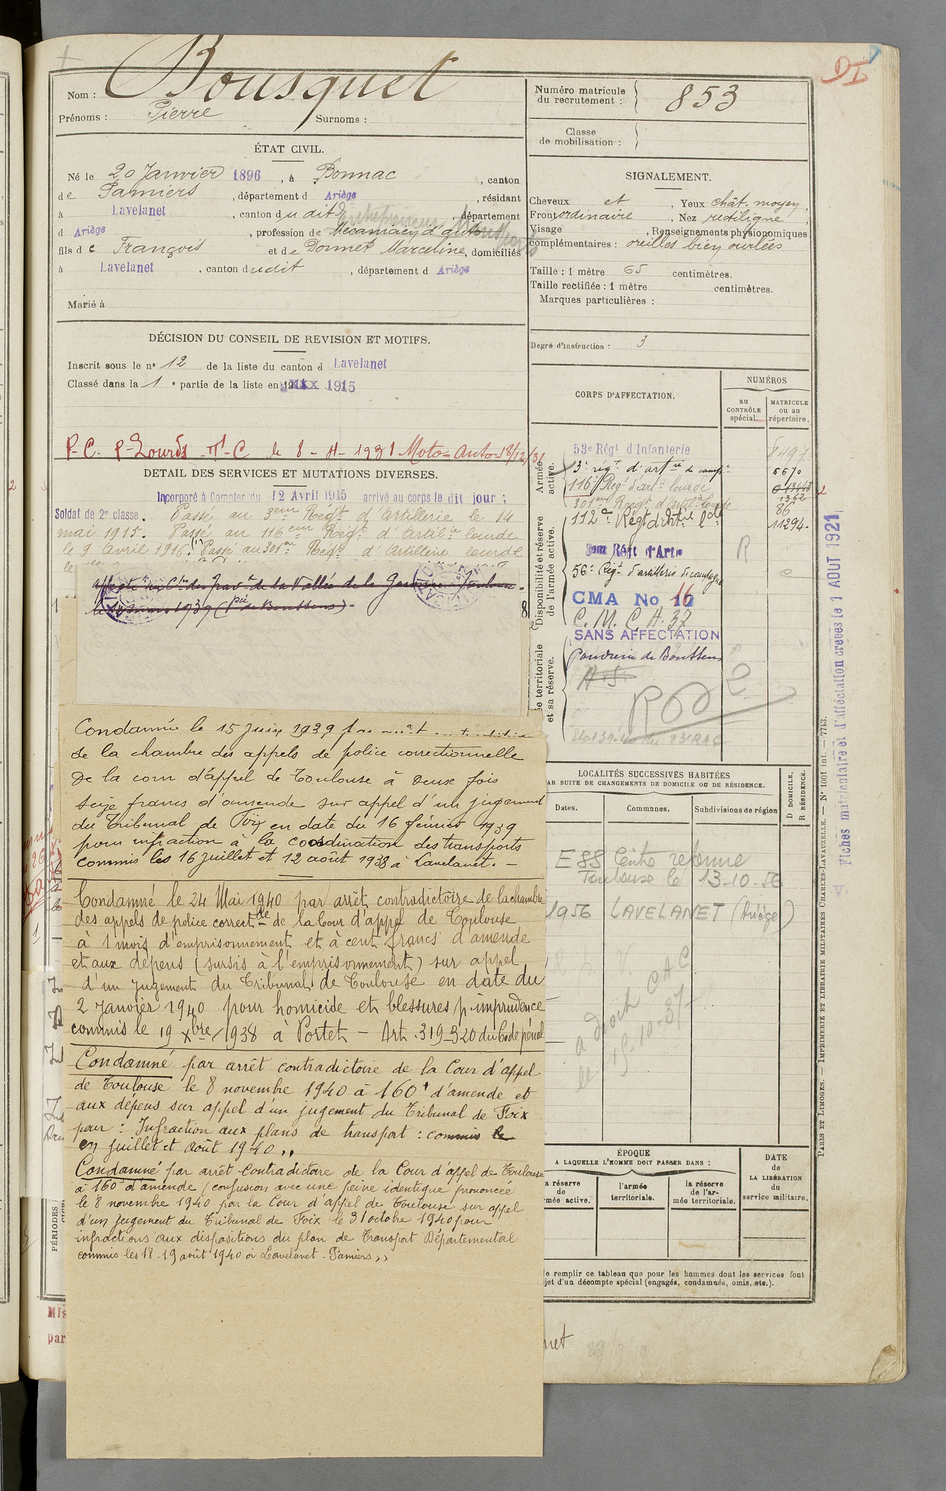 Nom : Bousquet
Prénoms : Pierre Surnoms :
ÉTAT CIVIL.
Né le 20 Janvier 1896, à Bonnac, canton
de Pamiers, département d Ariège, résidant
à Lavelanet, canton dudit, département
d Ariège, profession de Mécanicien d'auto
fils de François et de Donnet Marceline, domiciliés
à Lavelanet, canton dudit, département d Ariège
Marié à
DÉCISION DU CONSEIL DE REVISION ET MOTIFS.
Inscrit sous le n° 12 de la liste du canton d Lavelanet
Classé dans la 1e partie de la liste en 1915
P.C. P-Lourds
DÉTAIL DES SERVICES ET MUTATIONS DIVERSES.
Incorporé à compter du 12 Avril 1915 arrivé au corps le dit jour ;
Soldat de 2e classe. Passé au 3eme Régt d'artillerie le 14
mai 1915. Passé au 116eme Régt d'artilrie lourde
le 9 avril 1916. Passé au 301me Régt d'Artillerie lourde
Condamné le 15 Juin 1939
de la chambre des appels de police correctionnelle
de la cour d'appel de Toulouse à deux fois
seize francs d'amende sur appel d'un jugement
du Tribunal de Foix en date du 16 février 1939
pour infraction à la coordination des transports
commis les 16 juillet et 12 août 1938 à Lavelanet. -
Condamné le 24 Mai 1940 par arrêt contradictoire de la chambre
des appels de police correctlle de la Cour d'appel de Toulouse
à 1 mois d'emprisonnement et à cent francs d'amende
et aux dépens (sursis à l'emprisonnement) sur appel
d'un jugement du Tribunal de Toulouse en date du
2 Janvier 1940 pour homicide et blessures p. imprudence
commis le 19 Xbre 1938 à Portet - Art. 319-320 du Code pénal
Condamné par arrêt contradictoire de la Cour d'appel
de Toulouse le 8 novembre 1940 à 160f d'amende et
aux dépens sur appel d'un jugement du Tribunal de Foix
pour : Infraction aux plans de transport : commis le
en juillet et août 1940 ,,
Condamné par arrêt contradictoire de la Cour d'appel de Toulouse
à 160f d'amende (confusion avec une peine identique prononcée
le 8 novembre 1940 par la Cour d'appel de Toulouse sur appel
d'un jugement du Tribunal de Foix le 31 octobre 1940 pour
infractions aux dispositions du plan de Transport Départemental
commis les 18-19 août 1940 à Lavelanet - Pamiers ,,
PÉRIODES
Numéro matricule
du recrutement : 853
Classe
de mobilisation :
SIGNALEMENT.
Cheveux et, Yeux chât. moyen,
Front ordinaire, Nez rectiligne
Visage, Renseignements physionomiques
complémentaires : oreilles bien ourlées
Taille : 1 mètre 65 centimètres.
Taille rectifiée : 1 mètre centimètres.
Marques particulières :
Degré d'instruction : 3
CORPS D'AFFECTATION.
NUMÉROS
au contrôle spécial.
MATRICULE ou au répertoire.
Armée active.
53e Régt d'Infanterie
3e régt d'artie de campne
116e Régt d'art. lourde
Disponibilité et réserve de l'armée active.
112e Régt d'Artrie Lde 11294.
3eme Régt d'Artie
56e Régt d'artillerie de campagne
CMA No 16
C.M.C.A. 37
SANS AFFECTATION
territoriale et sa réserve.
Poudrerie de Boussens
LOCALITÉS SUCCESSIVES HABITÉES
PAR SUITE DE CHANGEMENTS DE DOMICILE OU DE RÉSIDENCE.
Dates. Communes. Subdivisions de région
D DOMICILE.
R RÉSIDENCE.
E 88 Centre réforme
Toulouse le 13-10-56
1956 LAVELANET (Ariège)
ÉPOQUE
A LAQUELLE L'HOMME DOIT PASSER DANS :
la réserve de l'armée active.
l'armée territoriale.
la réserve de l'armée territoriale.
DATE
de
LA LIBÉRATION
du
service militaire.
Ne remplir ce tableau que pour les hommes dont les services font
l'objet d'un décompte spécial (engagés, condamnés, omis, etc.).
PARIS ET LIMOGES. — IMPRIMERIE ET LIBRAIRIE MILITAIRES CHARLES-LAVAUZELLE. — N° 1001 int. — 7743.
Fiches matriculaire et d'affectation créées le 1 AOUT 1921